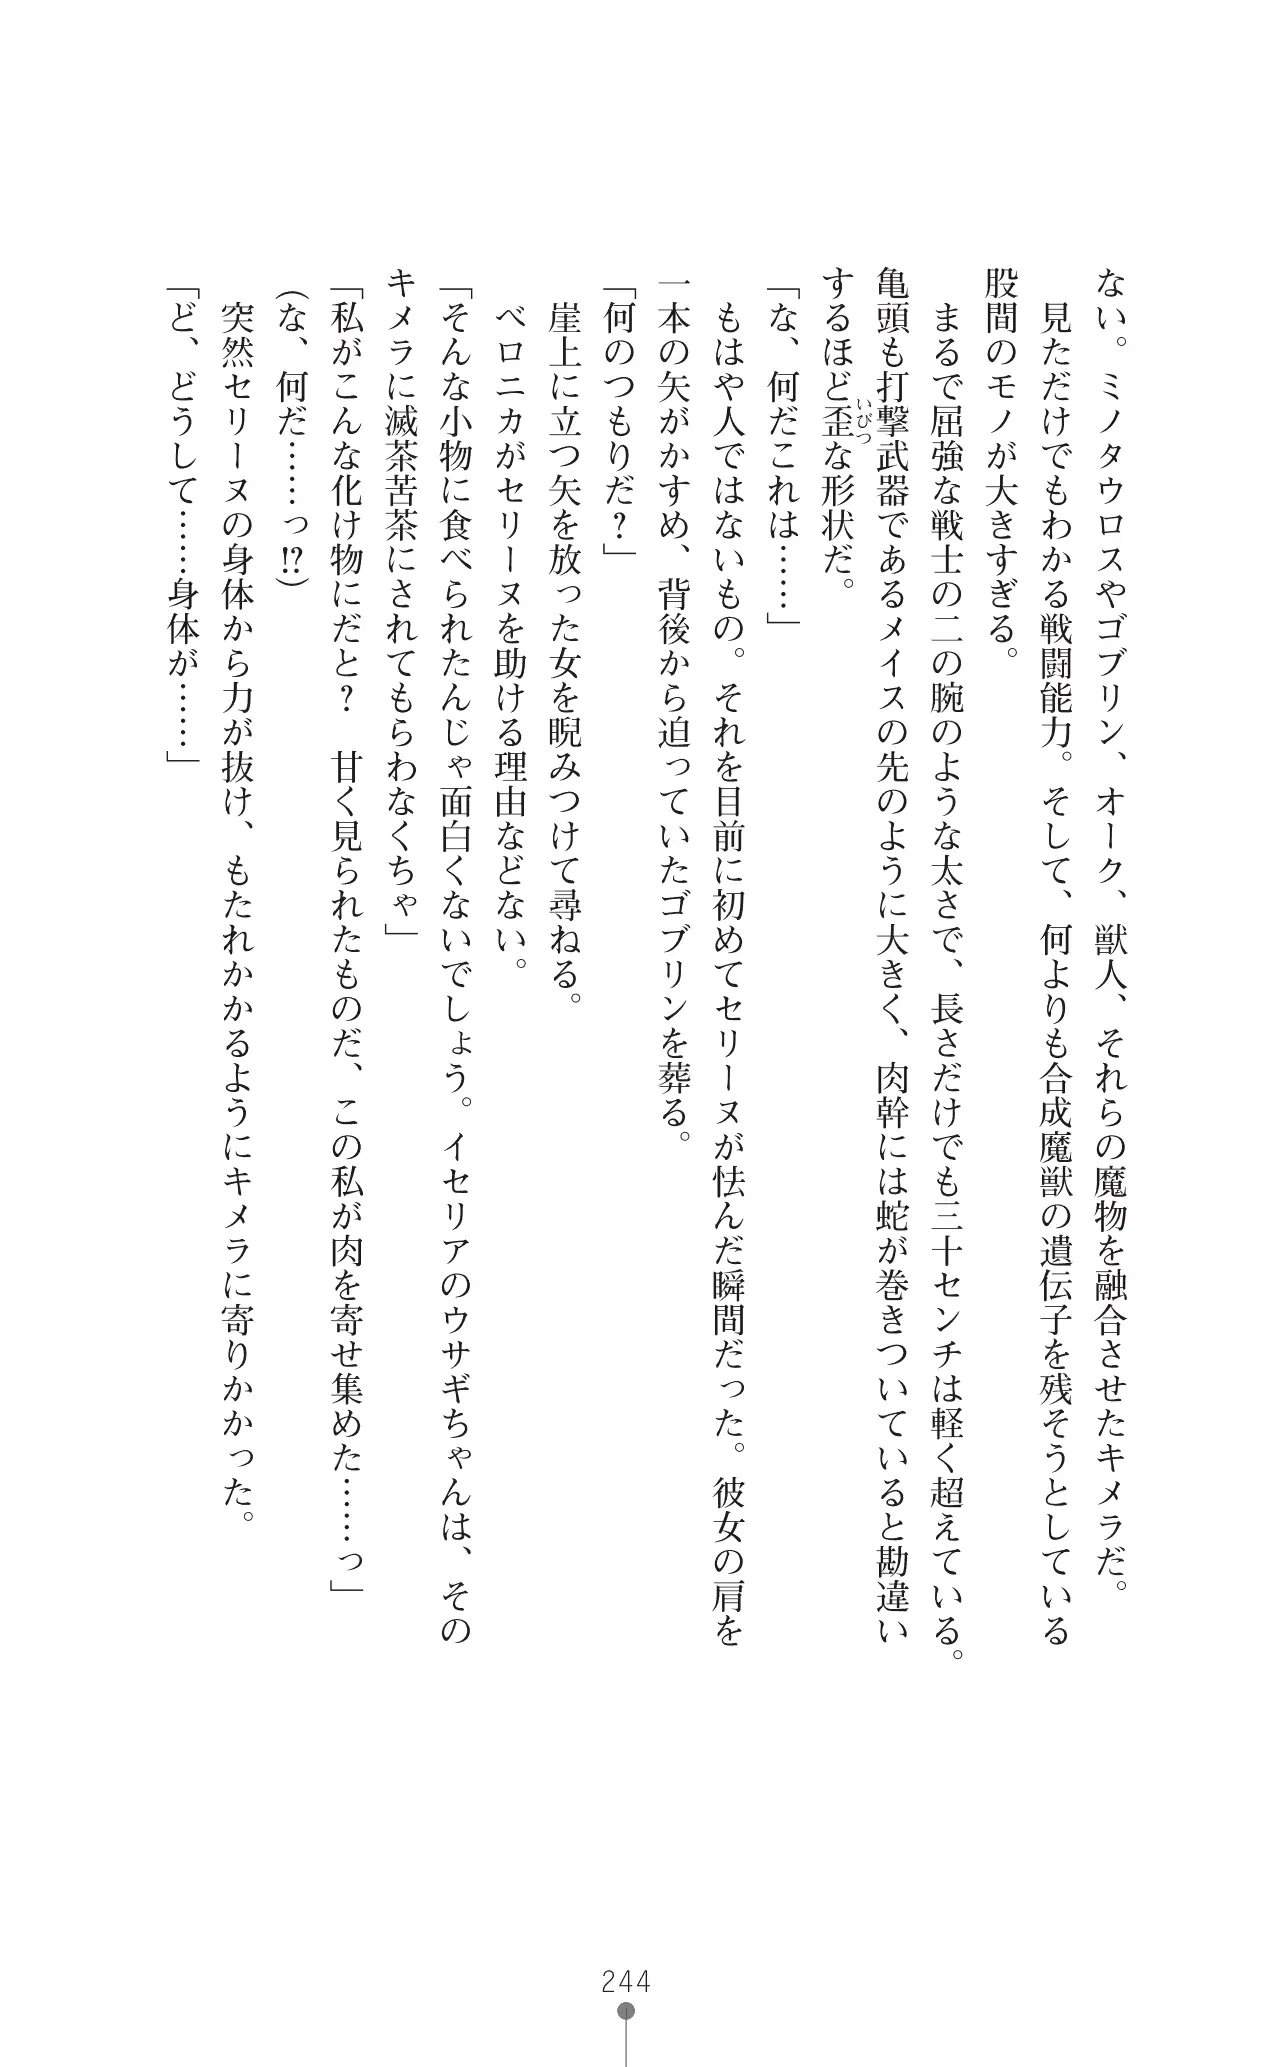 ない。ミノタウロスやゴブリン、オーク、獣人、それらの魔物を融合させたキメラだ。
見ただけでもわかる戦闘能力。そして、何よりも合成魔獣の遺伝子を残そうとしている
股間のモノが大きすぎる。
まるで屈強な戦士の二の腕のような太さで、長さだけでも三十センチは軽く超えている。
亀頭も打撃武器であるメイスの先のように大きく、肉幹には蛇が巻きついていると勘違い
するほど歪な形状だ。
いびつ
「な、何だこれは……」
もはや人ではないもの。それを目前に初めてセリーヌが怯んだ瞬間だった。彼女の肩を
一本の矢がかすめ、背後から迫っていたゴブリンを葬る。
「何のつもりだ？」
崖上に立つ矢を放った女を睨みつけて尋ねる。
ベロニカがセリーヌを助ける理由などない。
「そんな小物に食べられたんじゃ面白くないでしょう。イセリアのウサギちゃんは、その
キメラに滅茶苦茶にされてもらわなくちゃ」
「私がこんな化け物にだと？　甘く見られたものだ、この私が肉を寄せ集めた……っ」
（な、何だ……っ!?）
突然セリーヌの身体から力が抜け、もたれかかるようにキメラに寄りかかった。
「ど、どうして……身体が……」
244